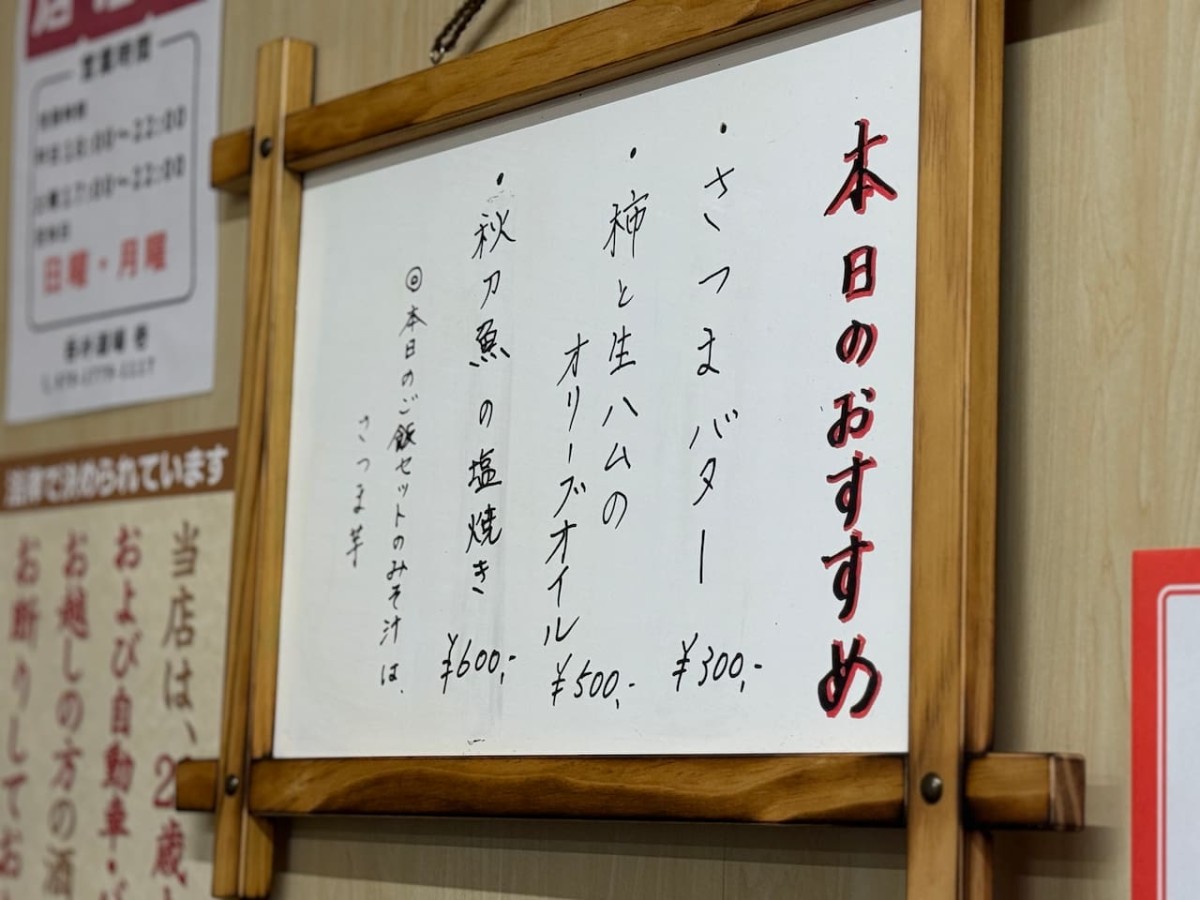 本日のおすすめ
・さつまバター ¥300,-
・柿と生ハムの
オリーブオイル ¥500,-
・秋刀魚の塩焼き ¥600,-
◎本日のご飯セットのみそ汁は、
さつま芋
営業時間
18:00〜22:00
17:00〜22:00
日曜・月曜
法律で決められています
当店は、2歳
および自動車・
お越しの方の酒
お断りしてお